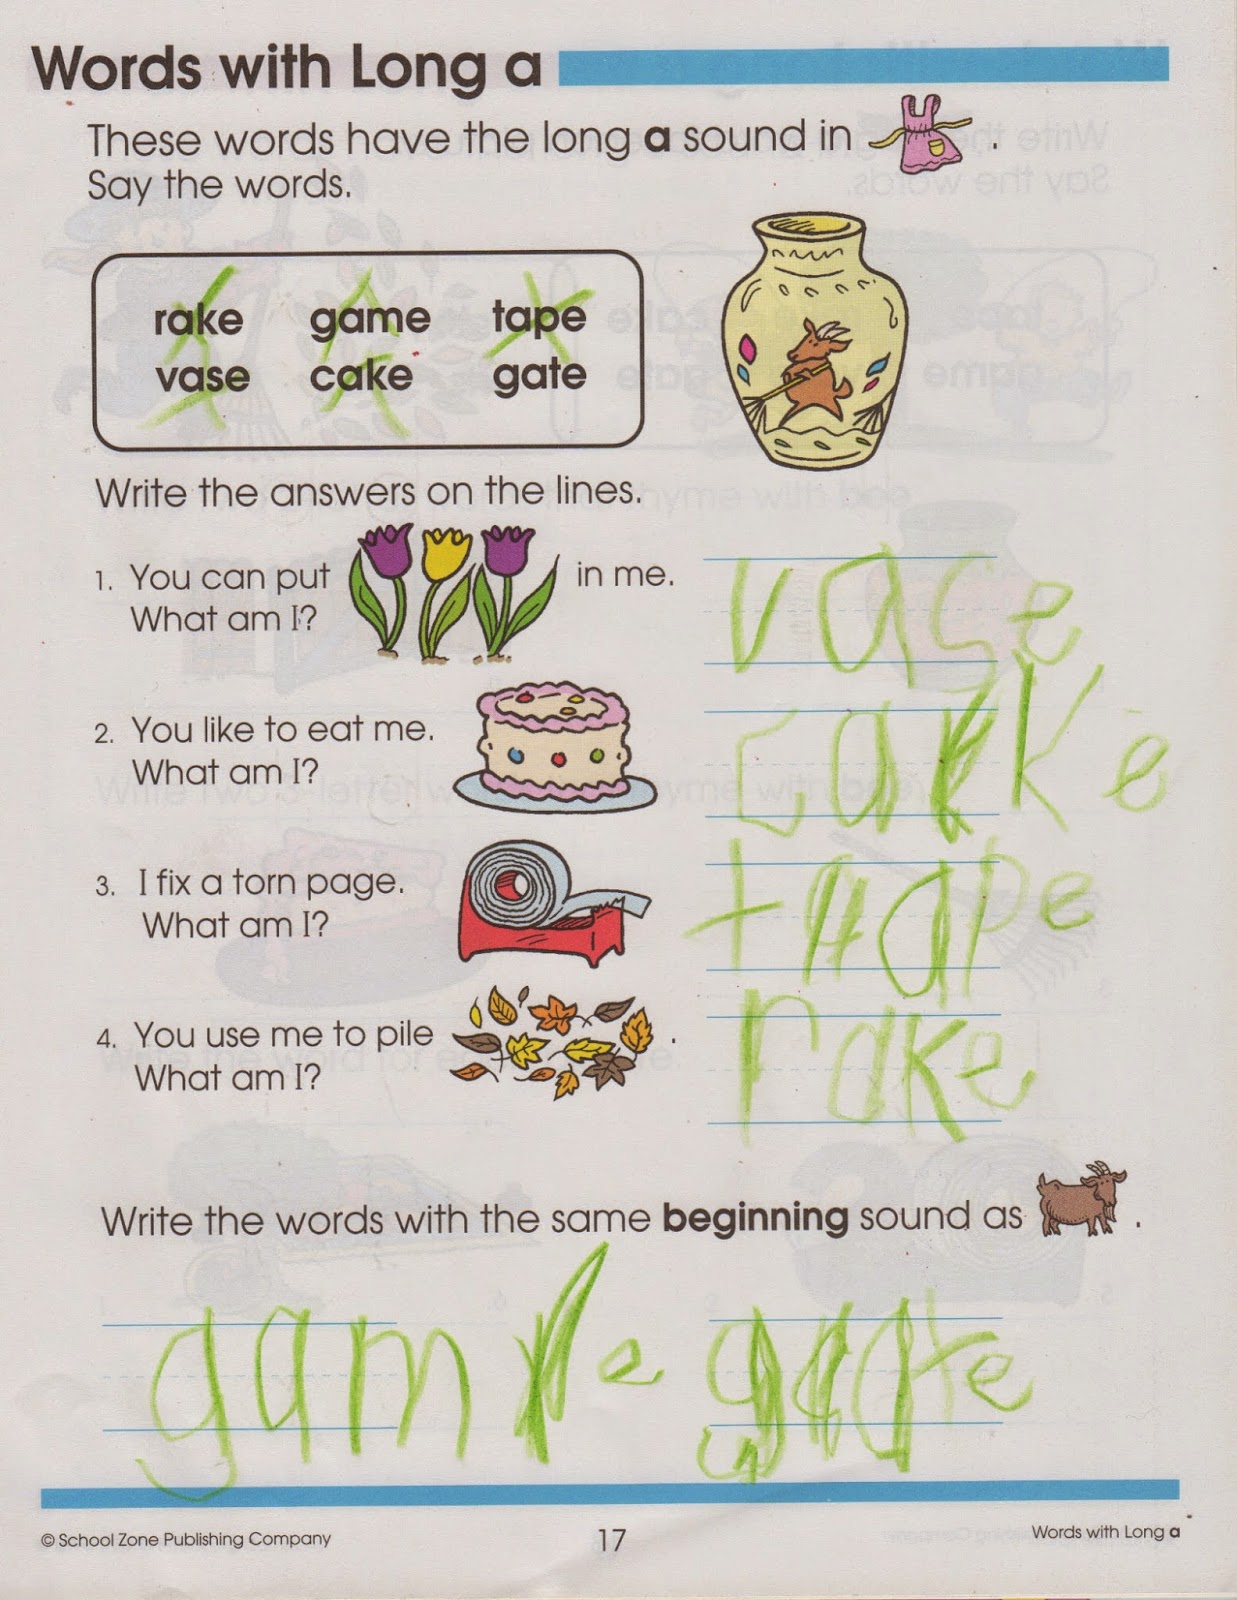 Words with Long a
These words have the long a sound in .
Say the words.
rake game tape
vase cake gate
Write the answers on the lines.
1. You can put in me.
What am I?
vase
2. You like to eat me.
What am I?
cake
3. I fix a torn page.
What am I?
tape
4. You use me to pile .
What am I?
rake
Write the words with the same beginning sound as .
game gate
© School Zone Publishing Company 17 Words with Long a